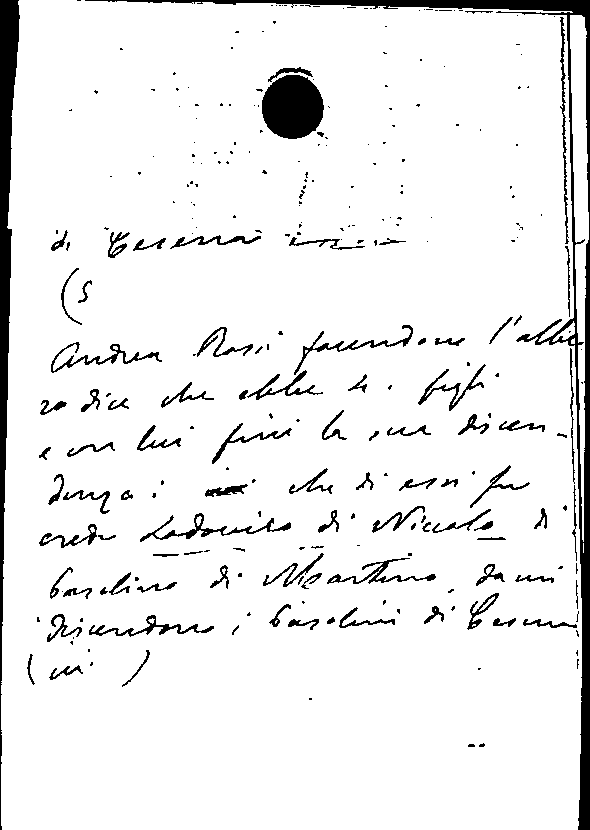 di Cesena
(S
Andrea Rossi facendone l'albe
ro dice che ebbe 4. figli
e con lui finì la sua discen-
denza: che di essi fu
erede Lodovico di Nicolo di
Basolino di Martino, da cui
discendono i Basolini di Cesena
(ivi)